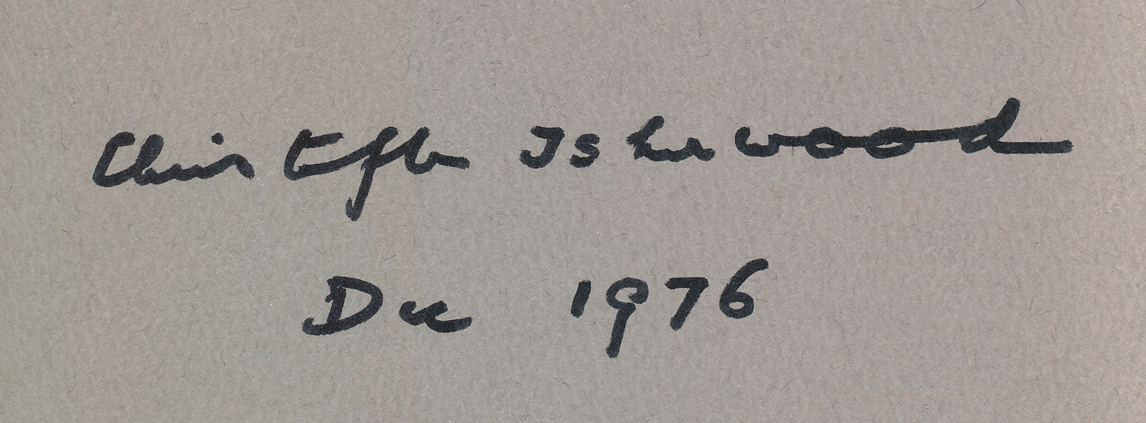 Christopher Isherwood
Dec 1976